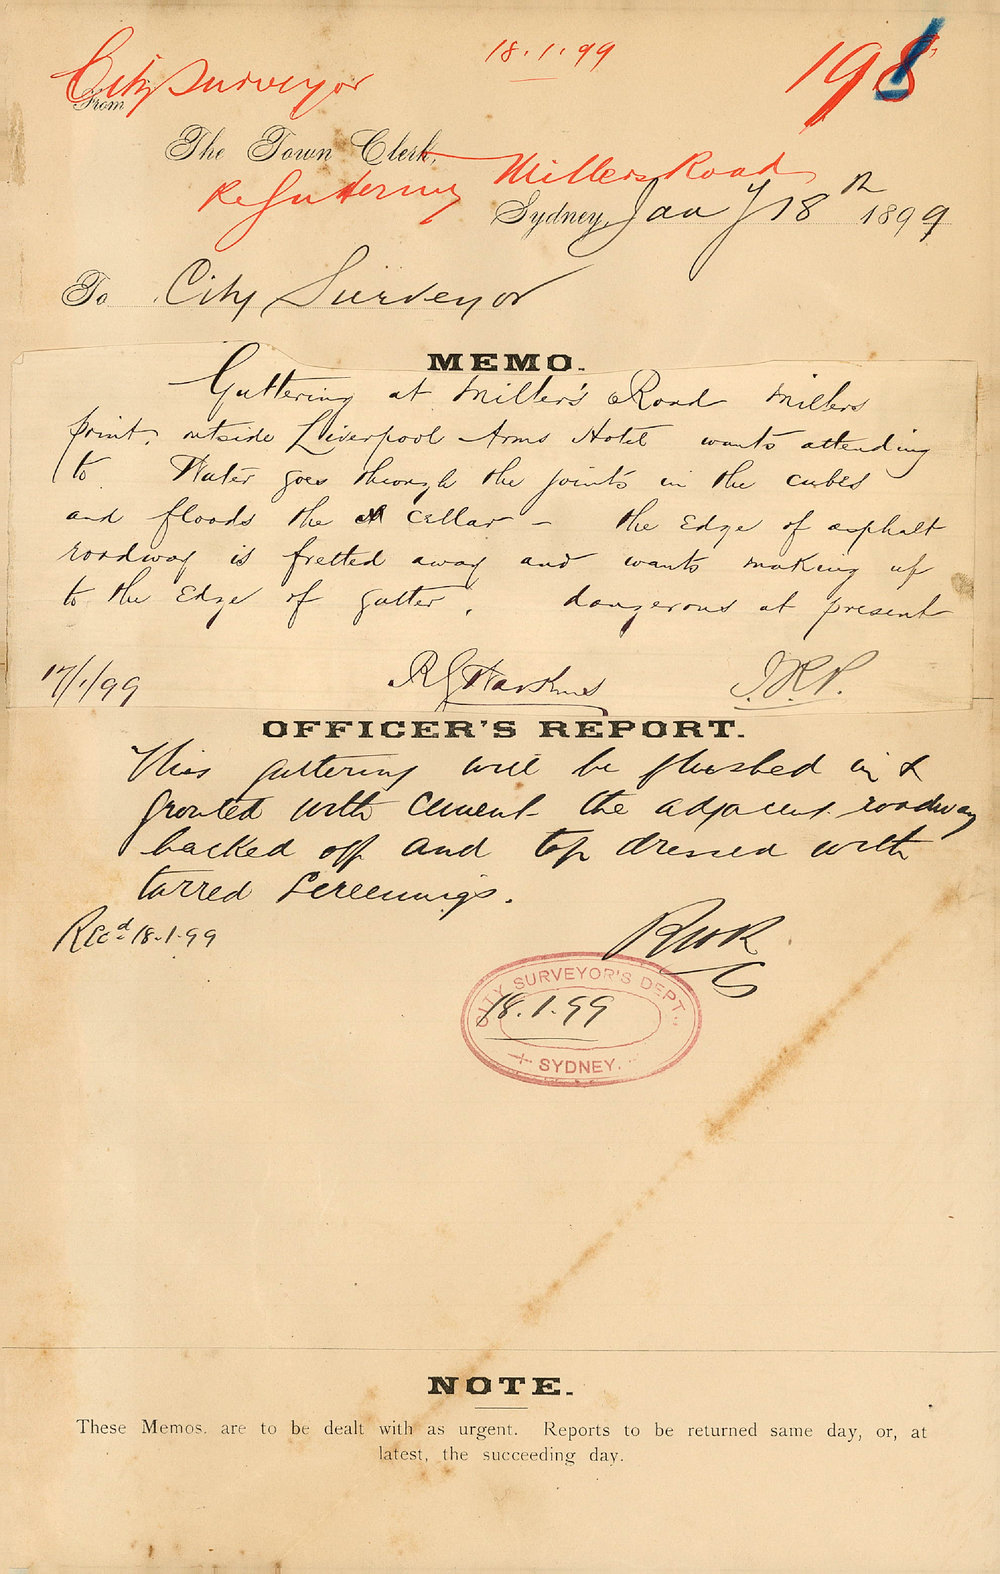 City Surveyor
18.1.99
198
From
The Town Clerk,
Re Guttering Millers Road
Sydney, Jany 18th 1899
To City Surveyor
MEMO.
Guttering at Miller's Road Millers
point. outside Liverpool Arms Hotel wants attending
to Water goes through the joints in the cubes
and floods the cellar - the Edge of asphalt
roadway is fretted away and wants making up
to the Edge of gutter. dangerous at present
17/1/99
OFFICER'S REPORT.
This guttering will be flushed in &
grouted with cement the adjacent roadway
backed off and top dressed with
tarred screenings.
Recd 18.1.99
CITY SURVEYOR'S DEPT.
18.1.99
SYDNEY.
NOTE.
These Memos. are to be dealt with as urgent. Reports to be returned same day, or, at
latest, the succeeding day.